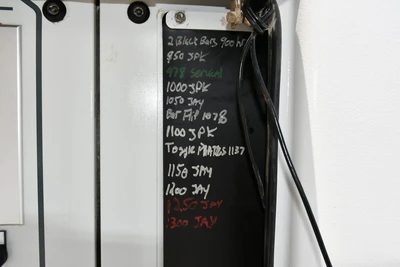 2 Black Bars 900 hr
950 JPK
978 Servant
1000 JPK
1050 JAY
Bar Flip 1078
1100 JPK
Toggle 1137
1150 JAY
1200 JAY
1250 JAY
1300 JAY